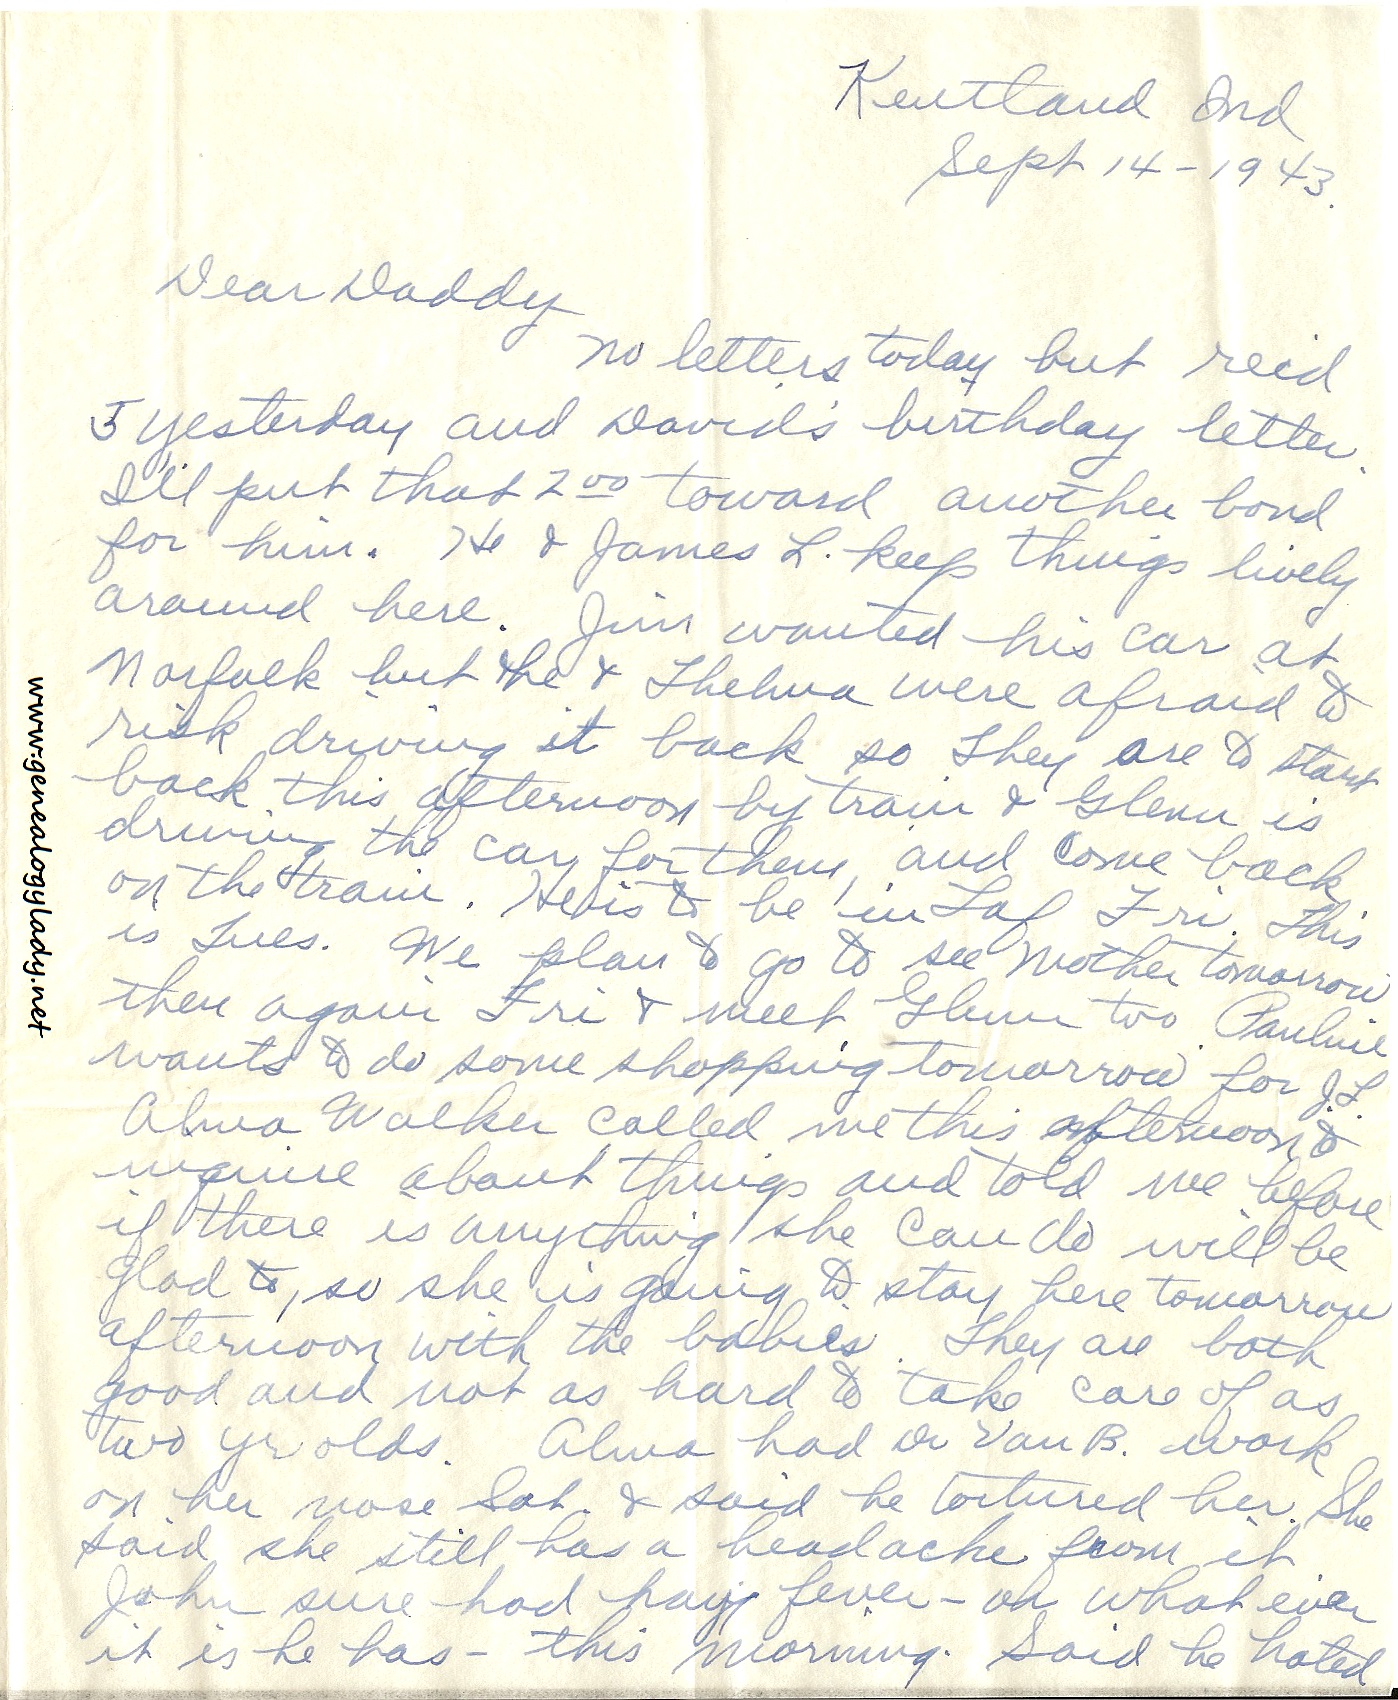 Kentland Ind
Sept 14-1943.
Dear Daddy
No letters today but recid
5 yesterday and David's birthday letter.
I'll put that 2 00 toward another bond
for him. He & James L. keep things lively
around here. Jim wanted his car at
Norfolk but he & Thelma were afraid to
risk driving it back so they are to start
back this afternoon by train & Glenn is
driving the car for them, and come back
on the train. He is to be in Laf Fri. This
is Tues. We plan to go to see Mother tomorrow
then again Fri & meet Glenn too. Pauline
wants to do some shopping tomorrow for J.L.
Alma Walker called me this afternoon to
inquire about things and told me before
if there is anything she can do will be
glad to, so she is going to stay here tomorrow
afternoon with the babies. They are both
good and not as hard to take care of as
two yr olds. Alma had Dr Van B. work
on her nose Sat. & said he tortured her. She
said she still has a headache from it
John sure had hay fever - or what ever
it is he has - this morning. Said he hated
www.genealogylady.net